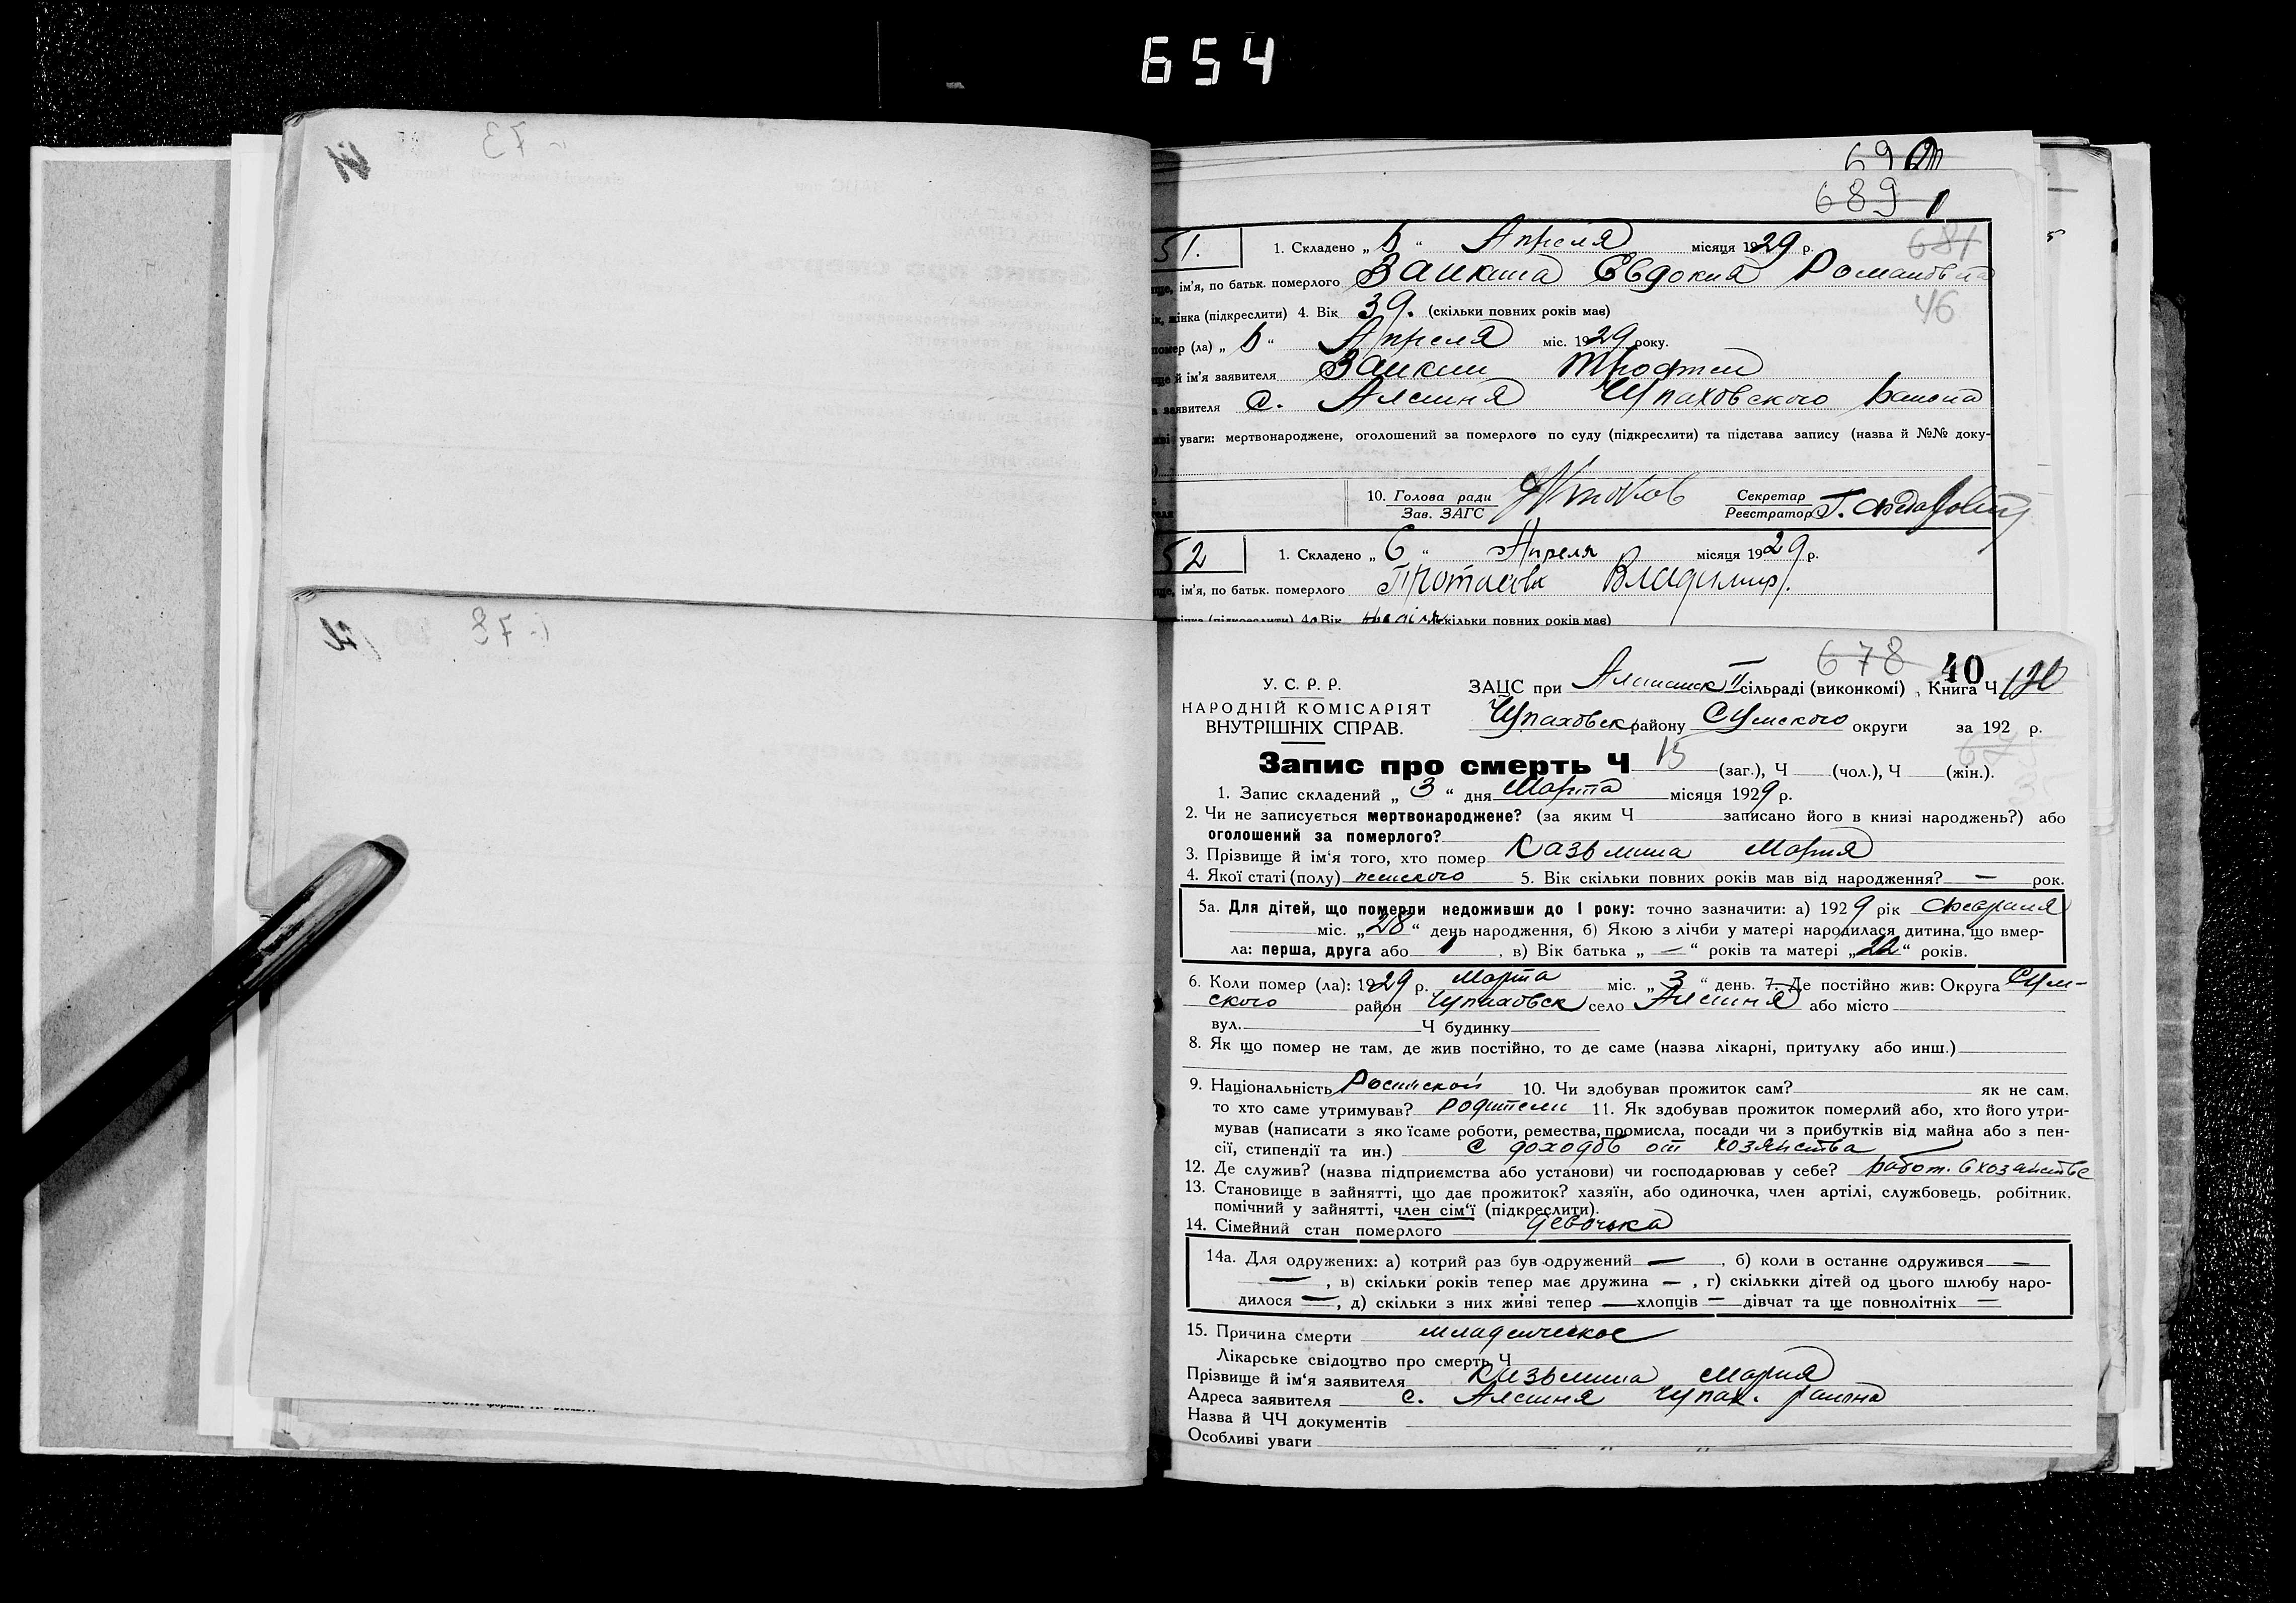 654
690
689
51.
1. Складено „5“ Апреля місяця 1929 р.
681
ім'я, по батьк. померлого Заикина Евдокия Романовна
жінка (підкреслити) 4. Вік 39. (скільки повних років має)
46
помер (ла) „5“ Апреля міс. 1929 року.
й ім'я заявителя Заикин Трофим
заявителя с. Алешня Чупаховского района
уваги: мертвонароджене, оголошений за померлого по суду (підкреслити) та підстава запису (назва й №№ доку-
10. Голова ради Секретар
Зав. ЗАГС Реєстратор
52
1. Складено „6“ Апреля місяця 1929 р.
ім'я, по батьк. померлого Протасов Владимир.
(підкреслити) 4. Вік скільки повних років має)
678 40
У. С. Р. Р.
ЗАЦС при Алешанск II сільраді (виконкомі), Книга Ч
НАРОДНІЙ КОМІСАРІЯТ
ВНУТРІШНІХ СПРАВ.
Чупаховск району Сумского округи за 192 р.
Запис про смерть Ч 15 (заг.), Ч (чол.), Ч (жін.).
1. Запис складений „3“ дня Марта місяця 1929 р.
2. Чи не записується мертвонароджене? (за яким Ч записано його в книзі народжень?) або
оголошений за померлого?
3. Прізвище й ім'я того, хто помер Казьмина Мария
4. Якої статі (полу) женского 5. Вік скільки повних років мав від народження? — рок.
5а. Для дітей, що померли недоживши до 1 року: точно зазначити: а) 1929 рік Февраля
міс. „28“ день народження, б) Якою з лічби у матері народилася дитина, що вмер-
ла: перша, друга або 1, в) Вік батька „—“ років та матері „22“ років.
6. Коли помер (ла): 1929 р. Марта міс. „3“ день. 7. Де постійно жив: Округа Сум-
ского район Чупаховск село Алешня або місто
вул. Ч будинку
8. Як що помер не там, де жив постійно, то де саме (назва лікарні, притулку або инш.)
9. Національність Росийской 10. Чи здобував прожиток сам? як не сам,
то хто саме утримував? родители 11. Як здобував прожиток померлий або, хто його утри-
мував (написати з яко їсаме роботи, ремества, промисла, посади чи з прибутків від майна або з пен-
сії, стипендії та ин.) С доходов от хозяйства
12. Де служив? (назва підприємства або установи) чи господарював у себе? работ. в хозяйстве
13. Становище в зайнятті, що дає прожиток? хазяїн, або одиночка, член артілі, службовець, робітник,
помічний у зайнятті, член сім'ї (підкреслити).
14. Сімейний стан померлого девочка
14а. Для одружених: а) котрий раз був одружений —, б) коли в останнє одружився —
—, в) скільки років тепер має дружина —, г) скількки дітей од цього шлюбу наро-
дилося —, д) скільки з них живі тепер — хлопців — дівчат та ще повнолітніх —
15. Причина смерти младенческое
Лікарське свідоцтво про смерть Ч
Прізвище й ім'я заявителя Казьмина Мария
Адреса заявителя с. Алешня Чупах. района
Назва й ЧЧ документів
Особливі уваги